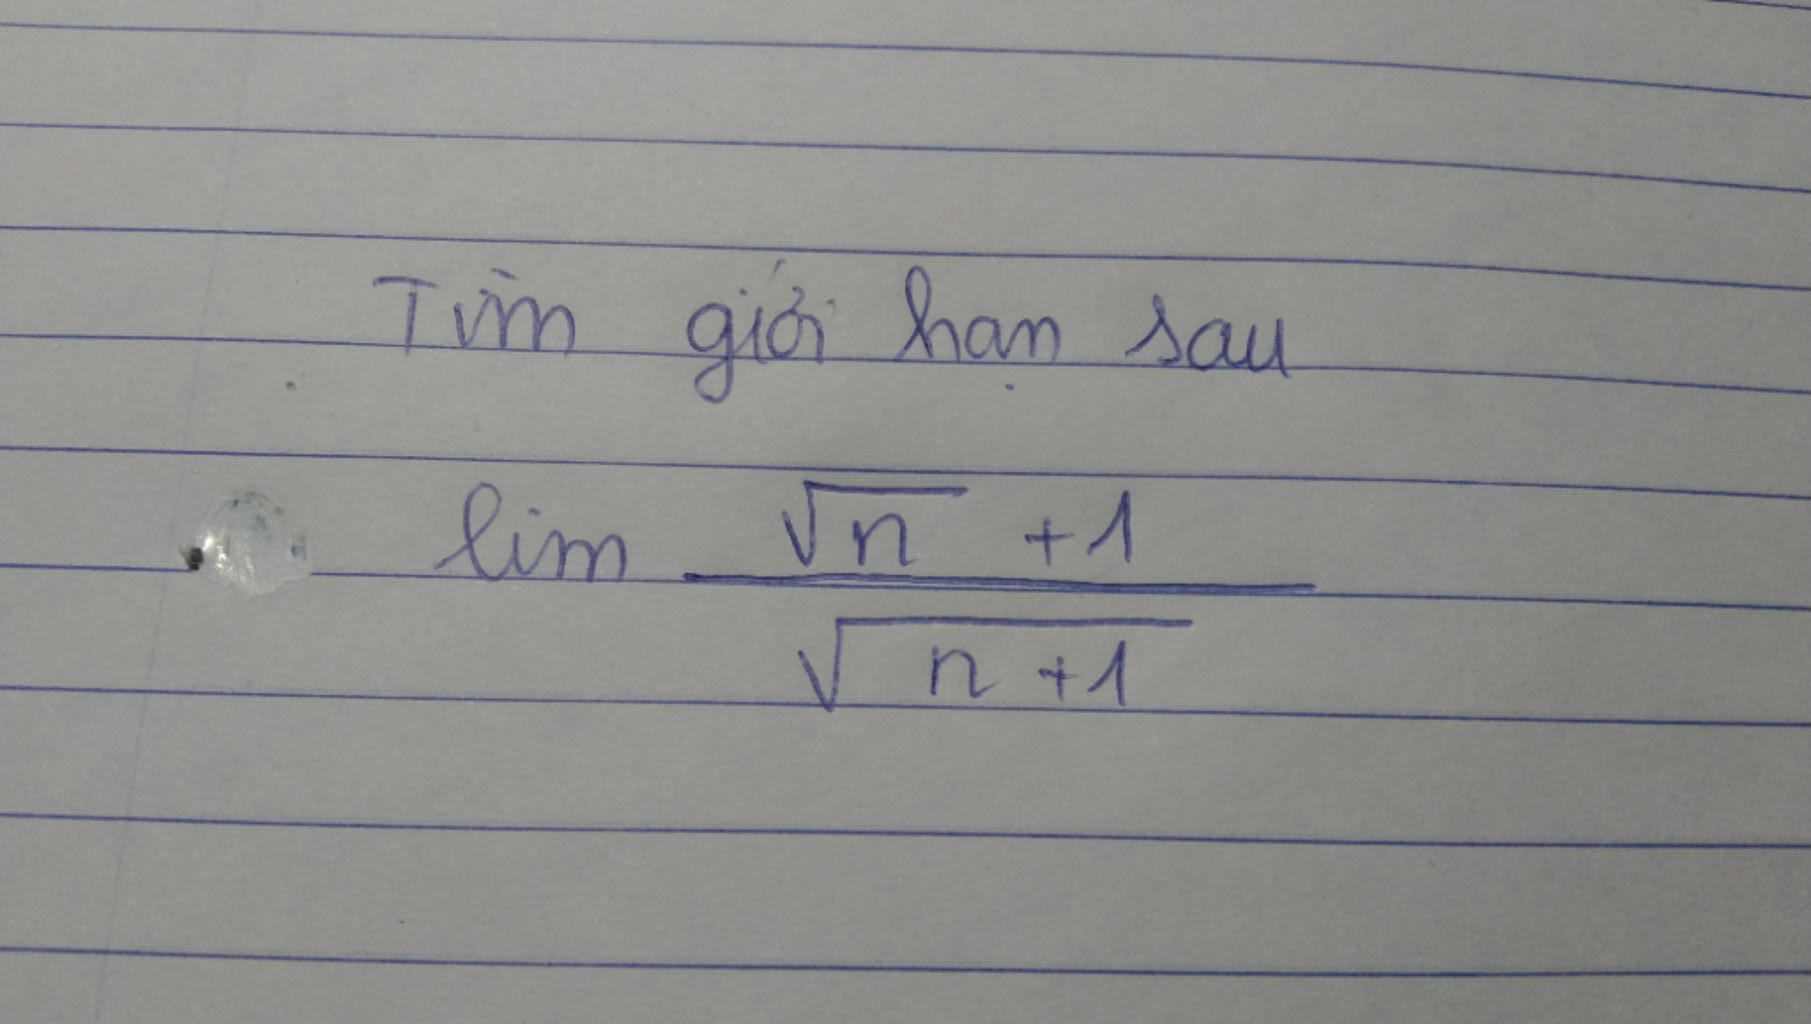 Tìm giới hạn sau
lim \frac{\sqrt{n} + 1}{\sqrt{n + 1}}